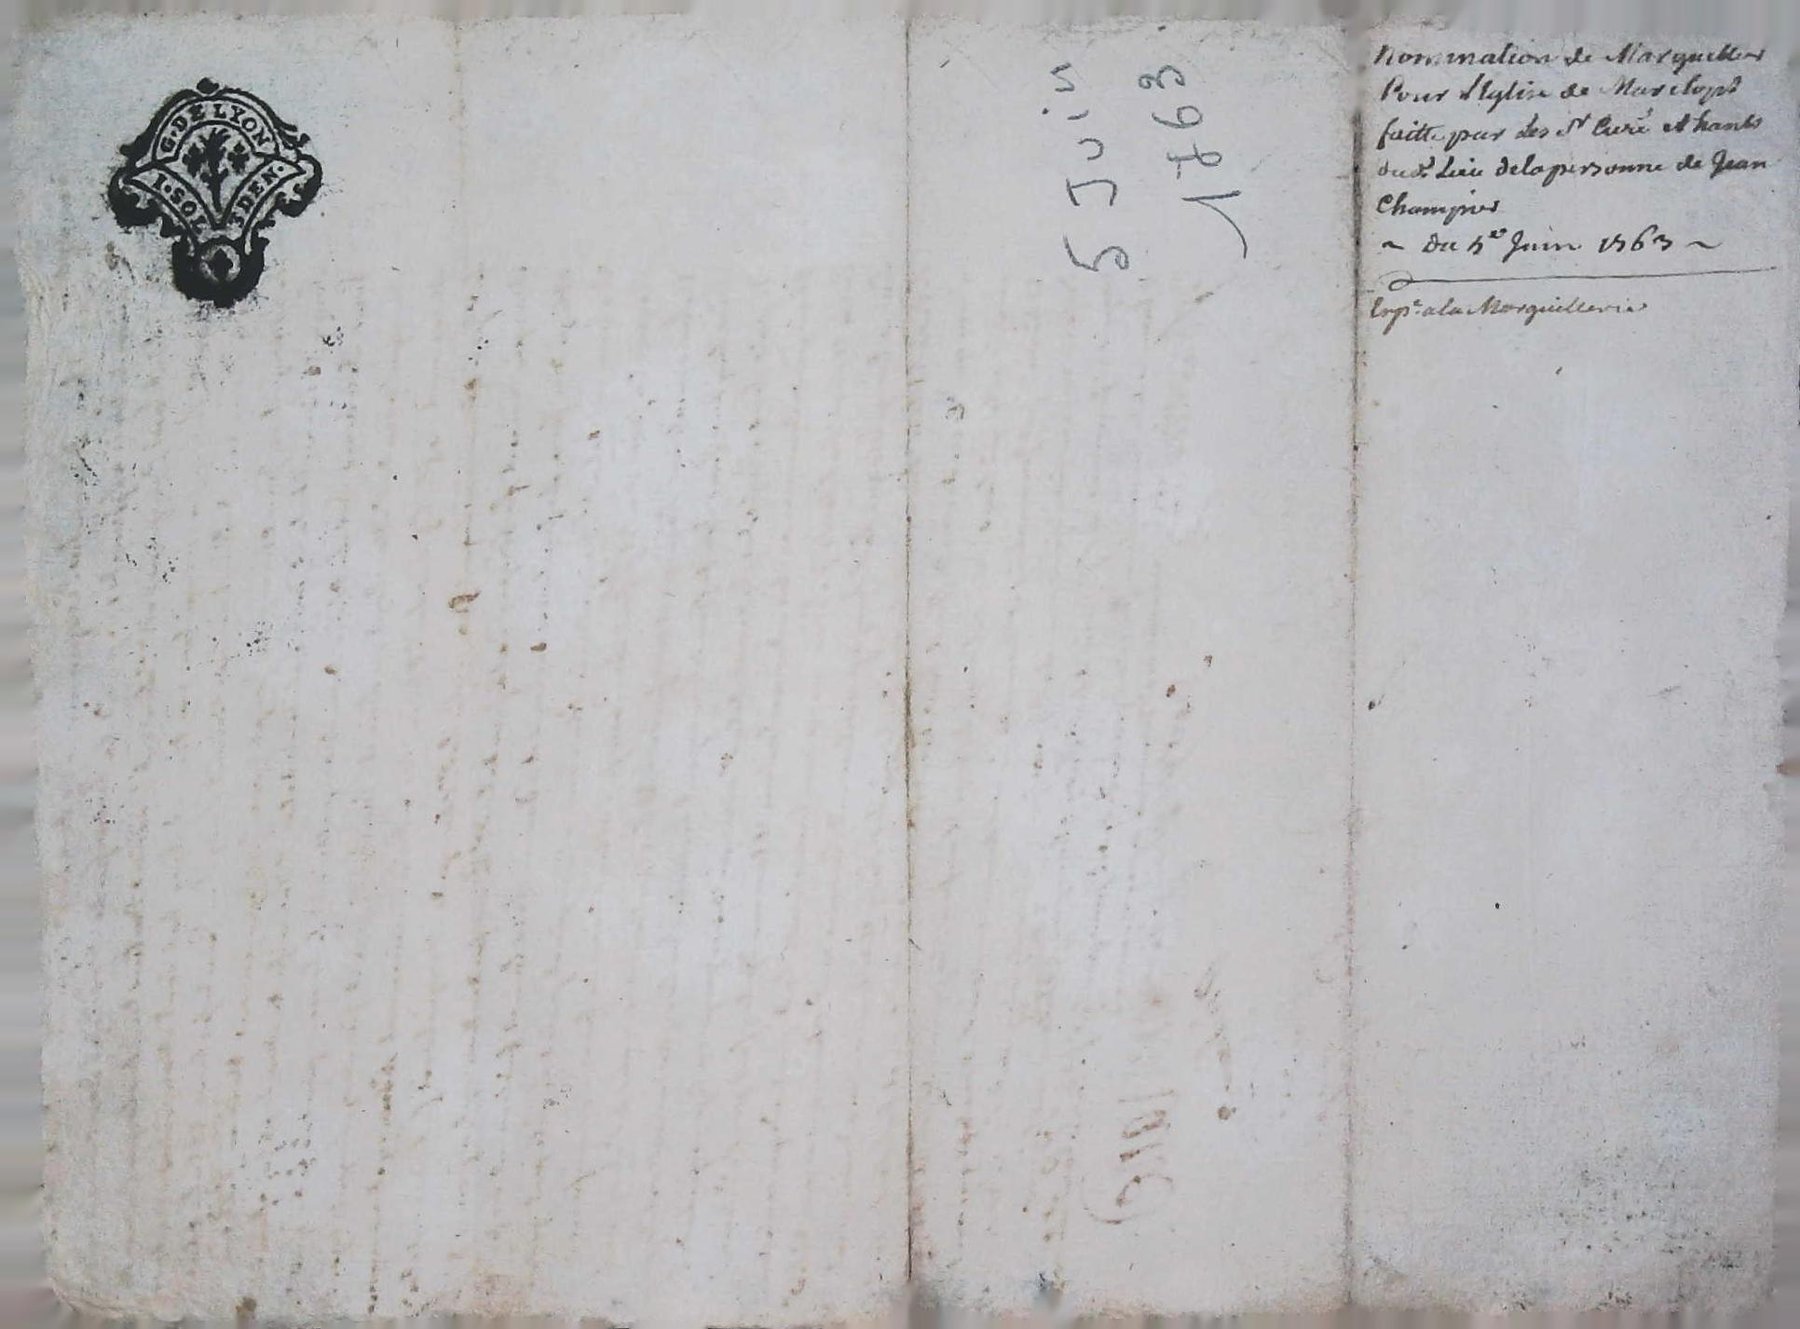 G. DE LYON
1. SOL 3 DEN.
5 Juin
1763
Nommination de Marguillier
Pour l'Eglise de Marclopt
faitte par les Sr Curé et hants
dud. Lieu de la personne de Jean
Champier
~ Du 5e Juin 1763 ~
a la Marguillerie